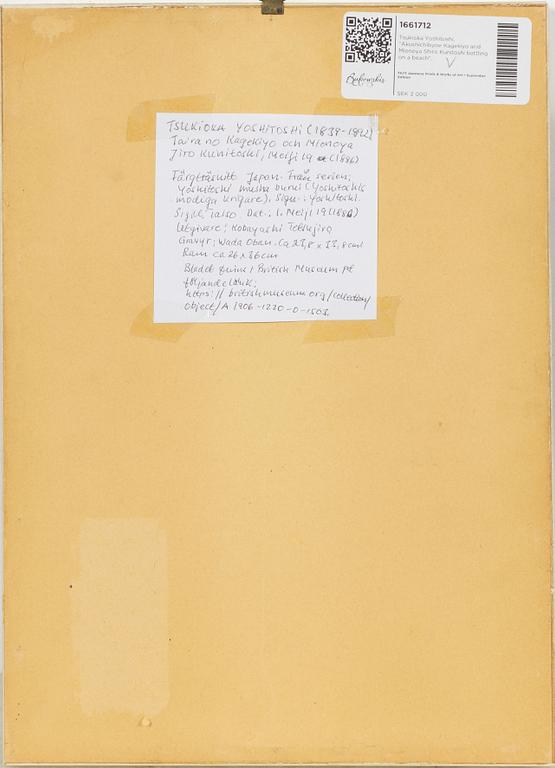 1661712
Tsukioka Yoshitoshi,
"Akushichibyoe Kagekiyo and
Mionoya Shiro Kunitoshi battling
on a beach".
SEK 2 000
Bukowskis
TSUKIOKA YOSHITOSHI (1839-1892)
Taira no Kagekiyo och Mionoya
Jiro Kunitoshi, Meiji 19 (1886)
Färgträsnitt Japan. Från serien;
Yoshitoshi musha burui (Yoshitoshis
modiga krigare). Sign.: Yoshitoshi.
Sigill; Taiso. Dat.: 1. Meiji 19 (1886)
Utgivare; Kobayashi Tetsujiro
Gravyr; Wada Oban. Ca
Ram ca 26 x 36 cm
Bladet finns i British Museum på
följande länk;
https://britishmuseum.org/collection/
object/A_1906-1220-0-1503.